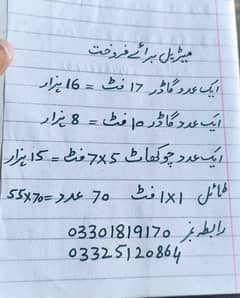 میٹریل برائے فروخت
ایک عدد گاڈر 17 فٹ = 16 ہزار
ایک عدد گاڈر 10 فٹ = 8 ہزار
ایک عدد چوکھاٹ 7x5 فٹ = 15 ہزار
ٹائل 1x1 فٹ 70 عدد = 55x70
رابطہ نمبر 03301819170
03325120864